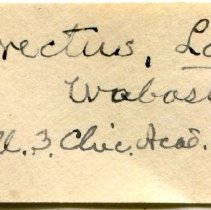 rectus, Lo
Wabas
Ill. 3. Chic. Acad.